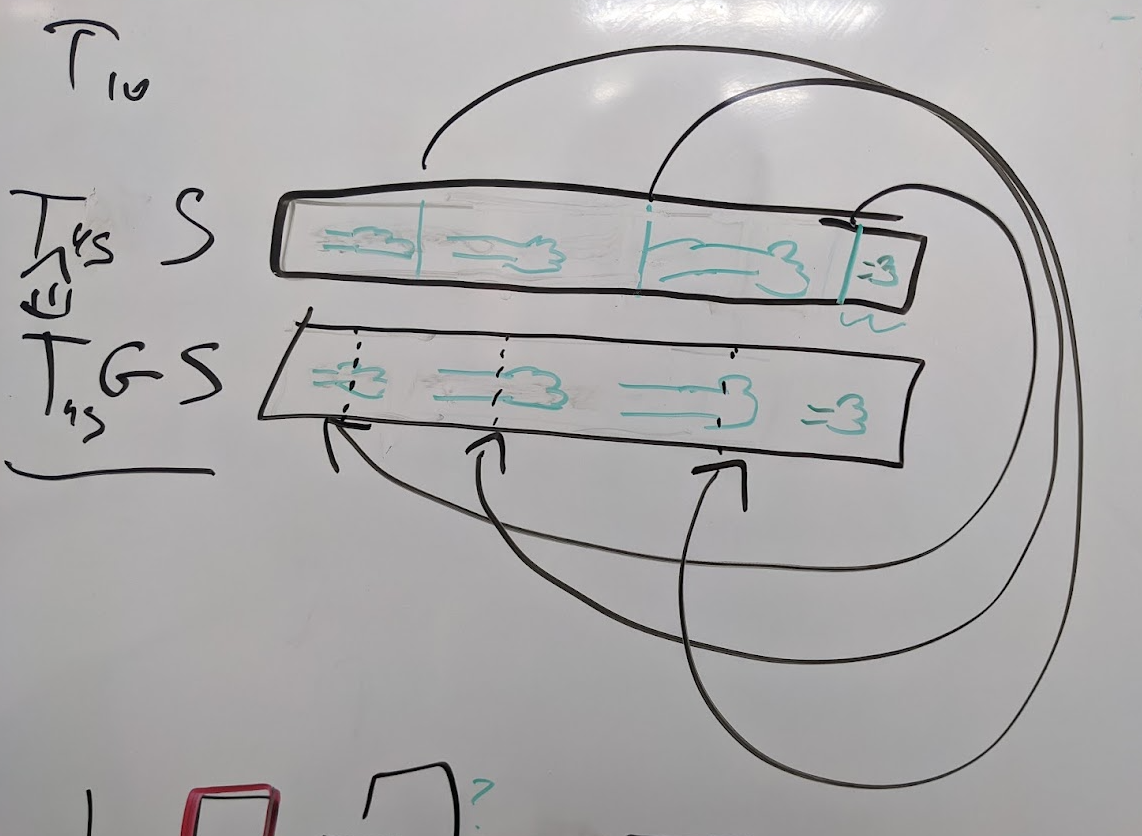 T10
T45 S
T45 G S
?